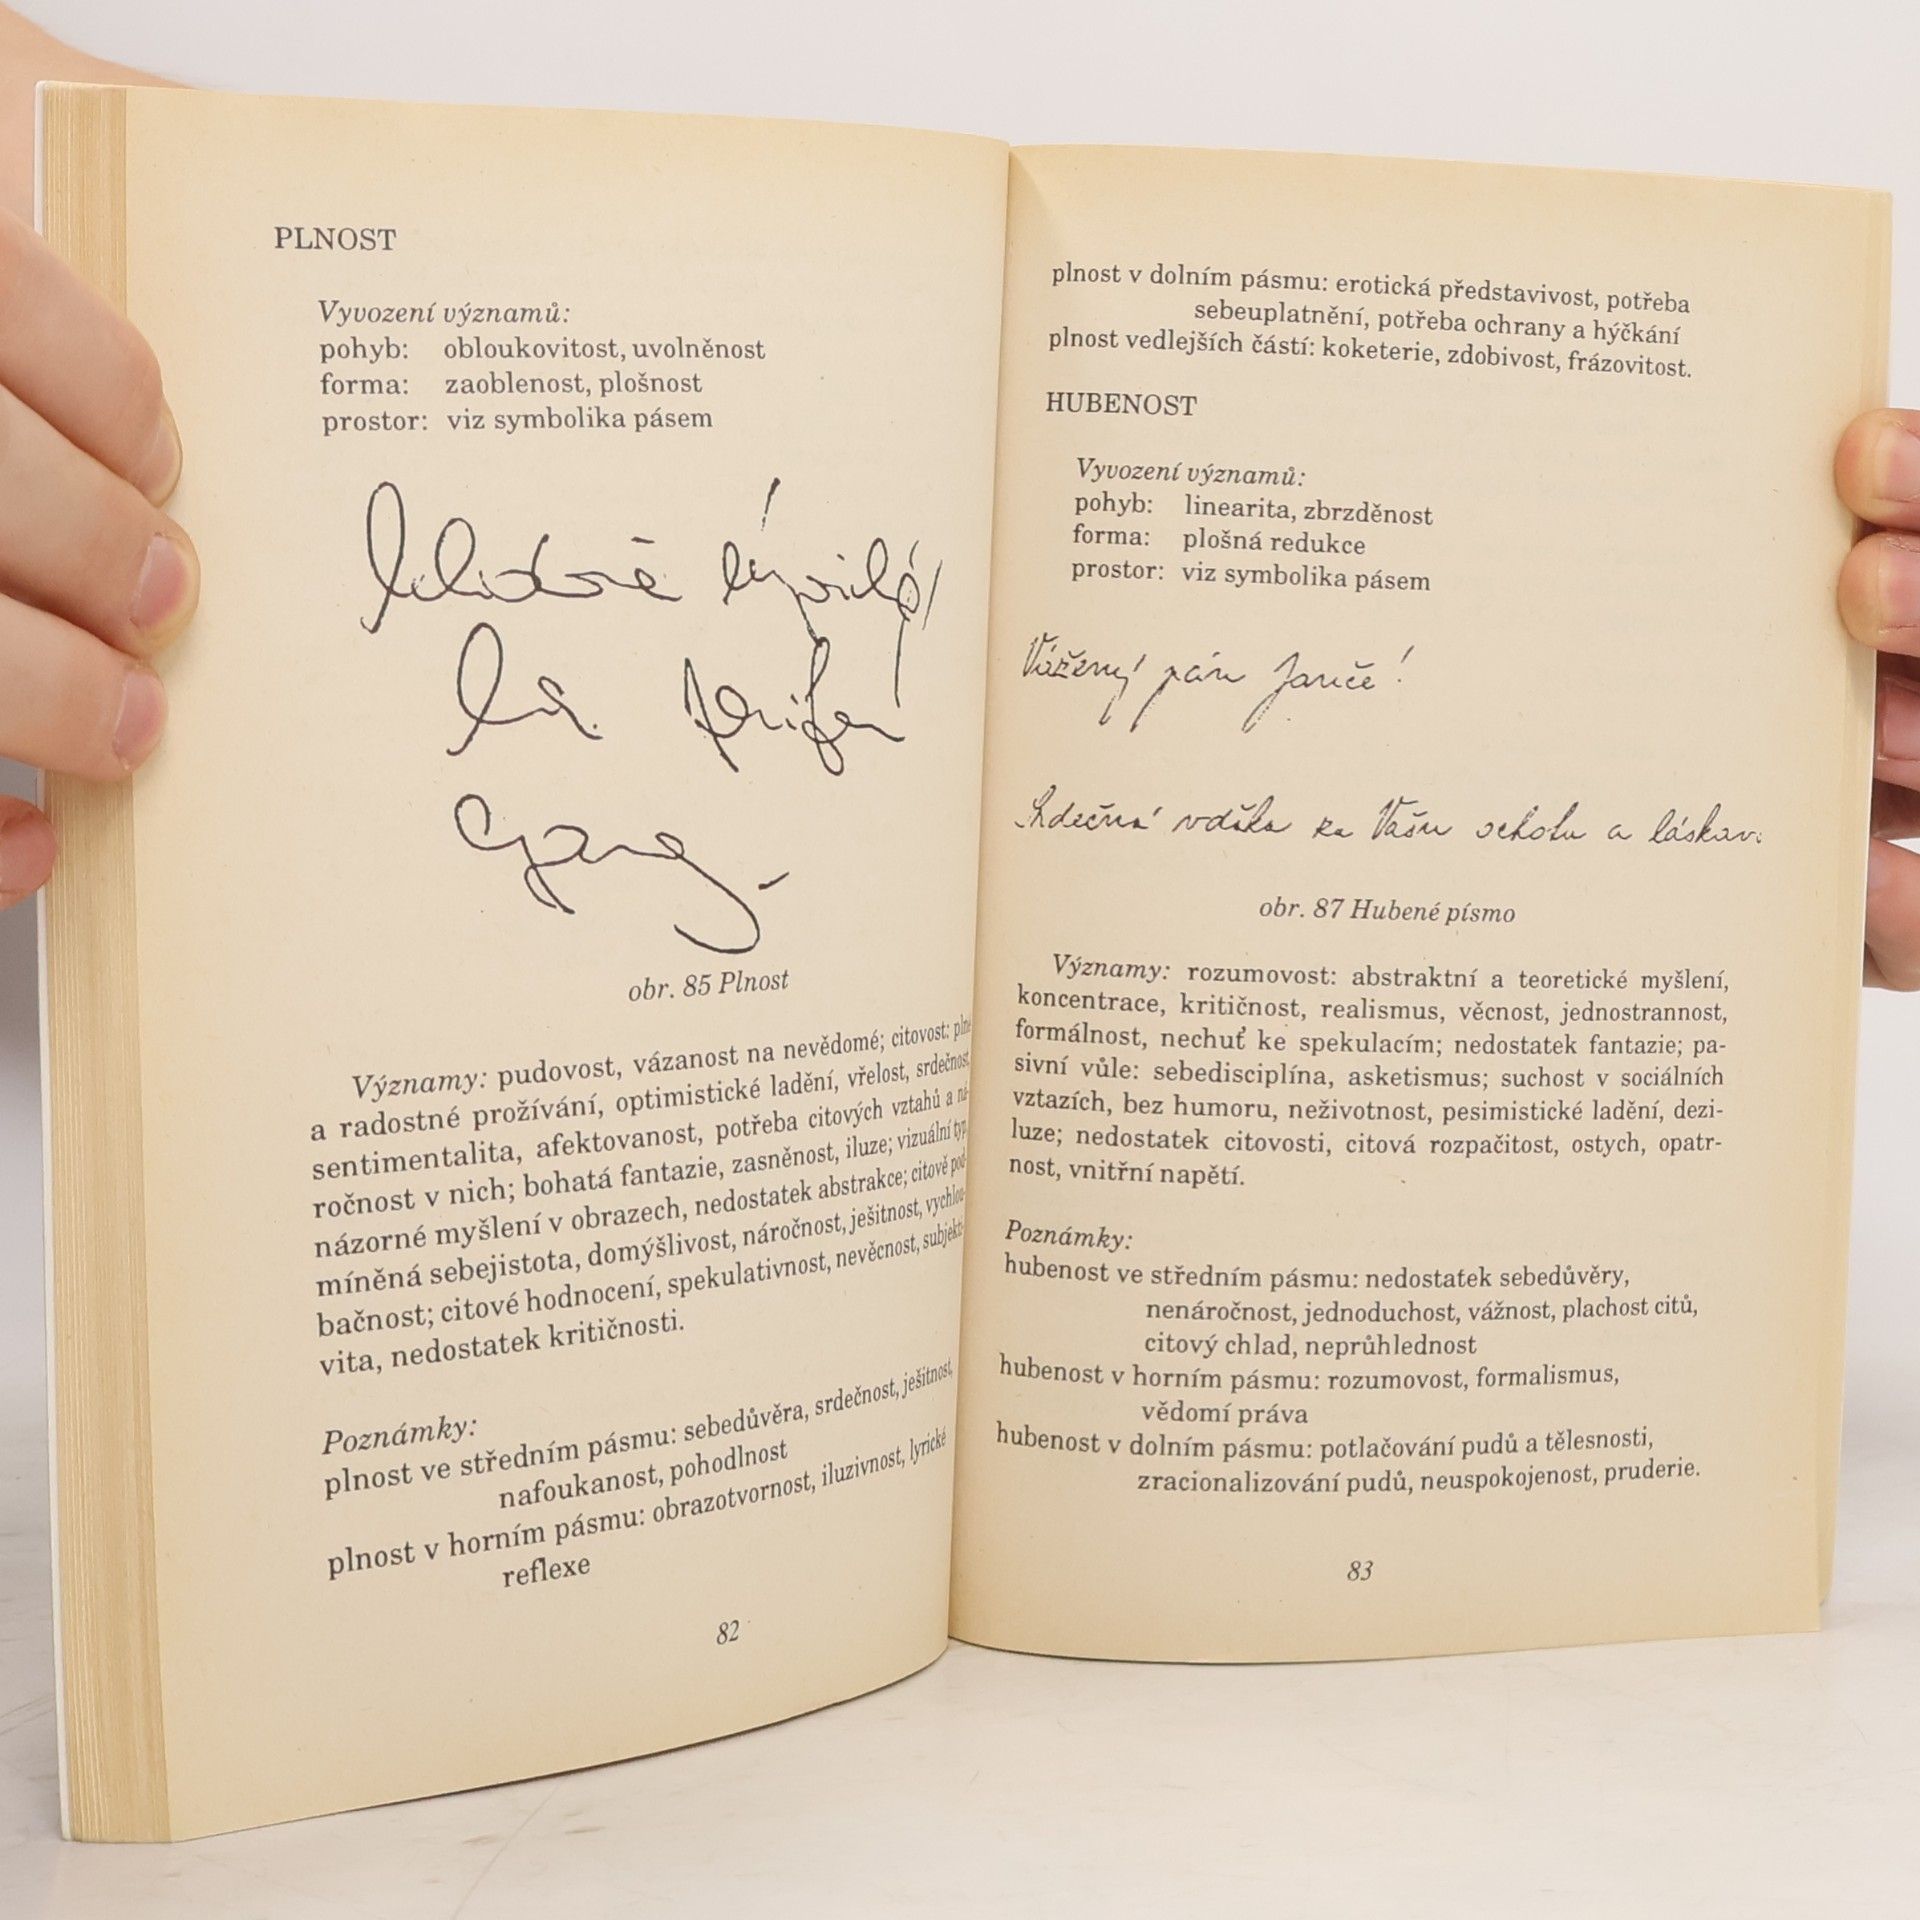 PLNOST
Vyvození významů:
pohyb: obloukovitost, uvolněnost
forma: zaoblenost, plošnost
prostor: viz symbolika pásem
obr. 85 Plnost
Významy: pudovost, vázanost na nevědomé; citovost: plné
a radostné prožívání, optimistické ladění, vřelost, srdečnost,
sentimentalita, afektovanost, potřeba citových vztahů a ná-
ročnost v nich; bohatá fantazie, zasněnost, iluze; vizuální typ,
názorné myšlení v obrazech, nedostatek abstrakce; citově pod-
míněná sebejistota, domýšlivost, náročnost, ješitnost, vychlou-
bačnost; citové hodnocení, spekulativnost, nevěcnost, subjekti-
vita, nedostatek kritičnosti.
Poznámky:
plnost ve středním pásmu: sebedůvěra, srdečnost, ješitnost,
nafoukanost, pohodlnost
plnost v horním pásmu: obrazotvornost, iluzivnost, lyrické
reflexe
82
plnost v dolním pásmu: erotická představivost, potřeba
sebeuplatnění, potřeba ochrany a hýčkání
plnost vedlejších částí: koketerie, zdobivost, frázovitost.
HUBENOST
Vyvození významů:
pohyb: linearita, zbrzděnost
forma: plošná redukce
prostor: viz symbolika pásem
Vážený pán Janče!
Srdečná vďaka za Vašu ochotu a láskav
obr. 87 Hubené písmo
Významy: rozumovost: abstraktní a teoretické myšlení,
koncentrace, kritičnost, realismus, věcnost, jednostrannost,
formálnost, nechuť ke spekulacím; nedostatek fantazie; pa-
sivní vůle: sebedisciplína, asketismus; suchost v sociálních
vztazích, bez humoru, neživotnost, pesimistické ladění, dezi-
luze; nedostatek citovosti, citová rozpačitost, ostych, opatr-
nost, vnitřní napětí.
Poznámky:
hubenost ve středním pásmu: nedostatek sebedůvěry,
nenáročnost, jednoduchost, vážnost, plachost citů,
citový chlad, neprůhlednost
hubenost v horním pásmu: rozumovost, formalismus,
vědomí práva
hubenost v dolním pásmu: potlačování pudů a tělesnosti,
zracionalizování pudů, neuspokojenost, pruderie.
83